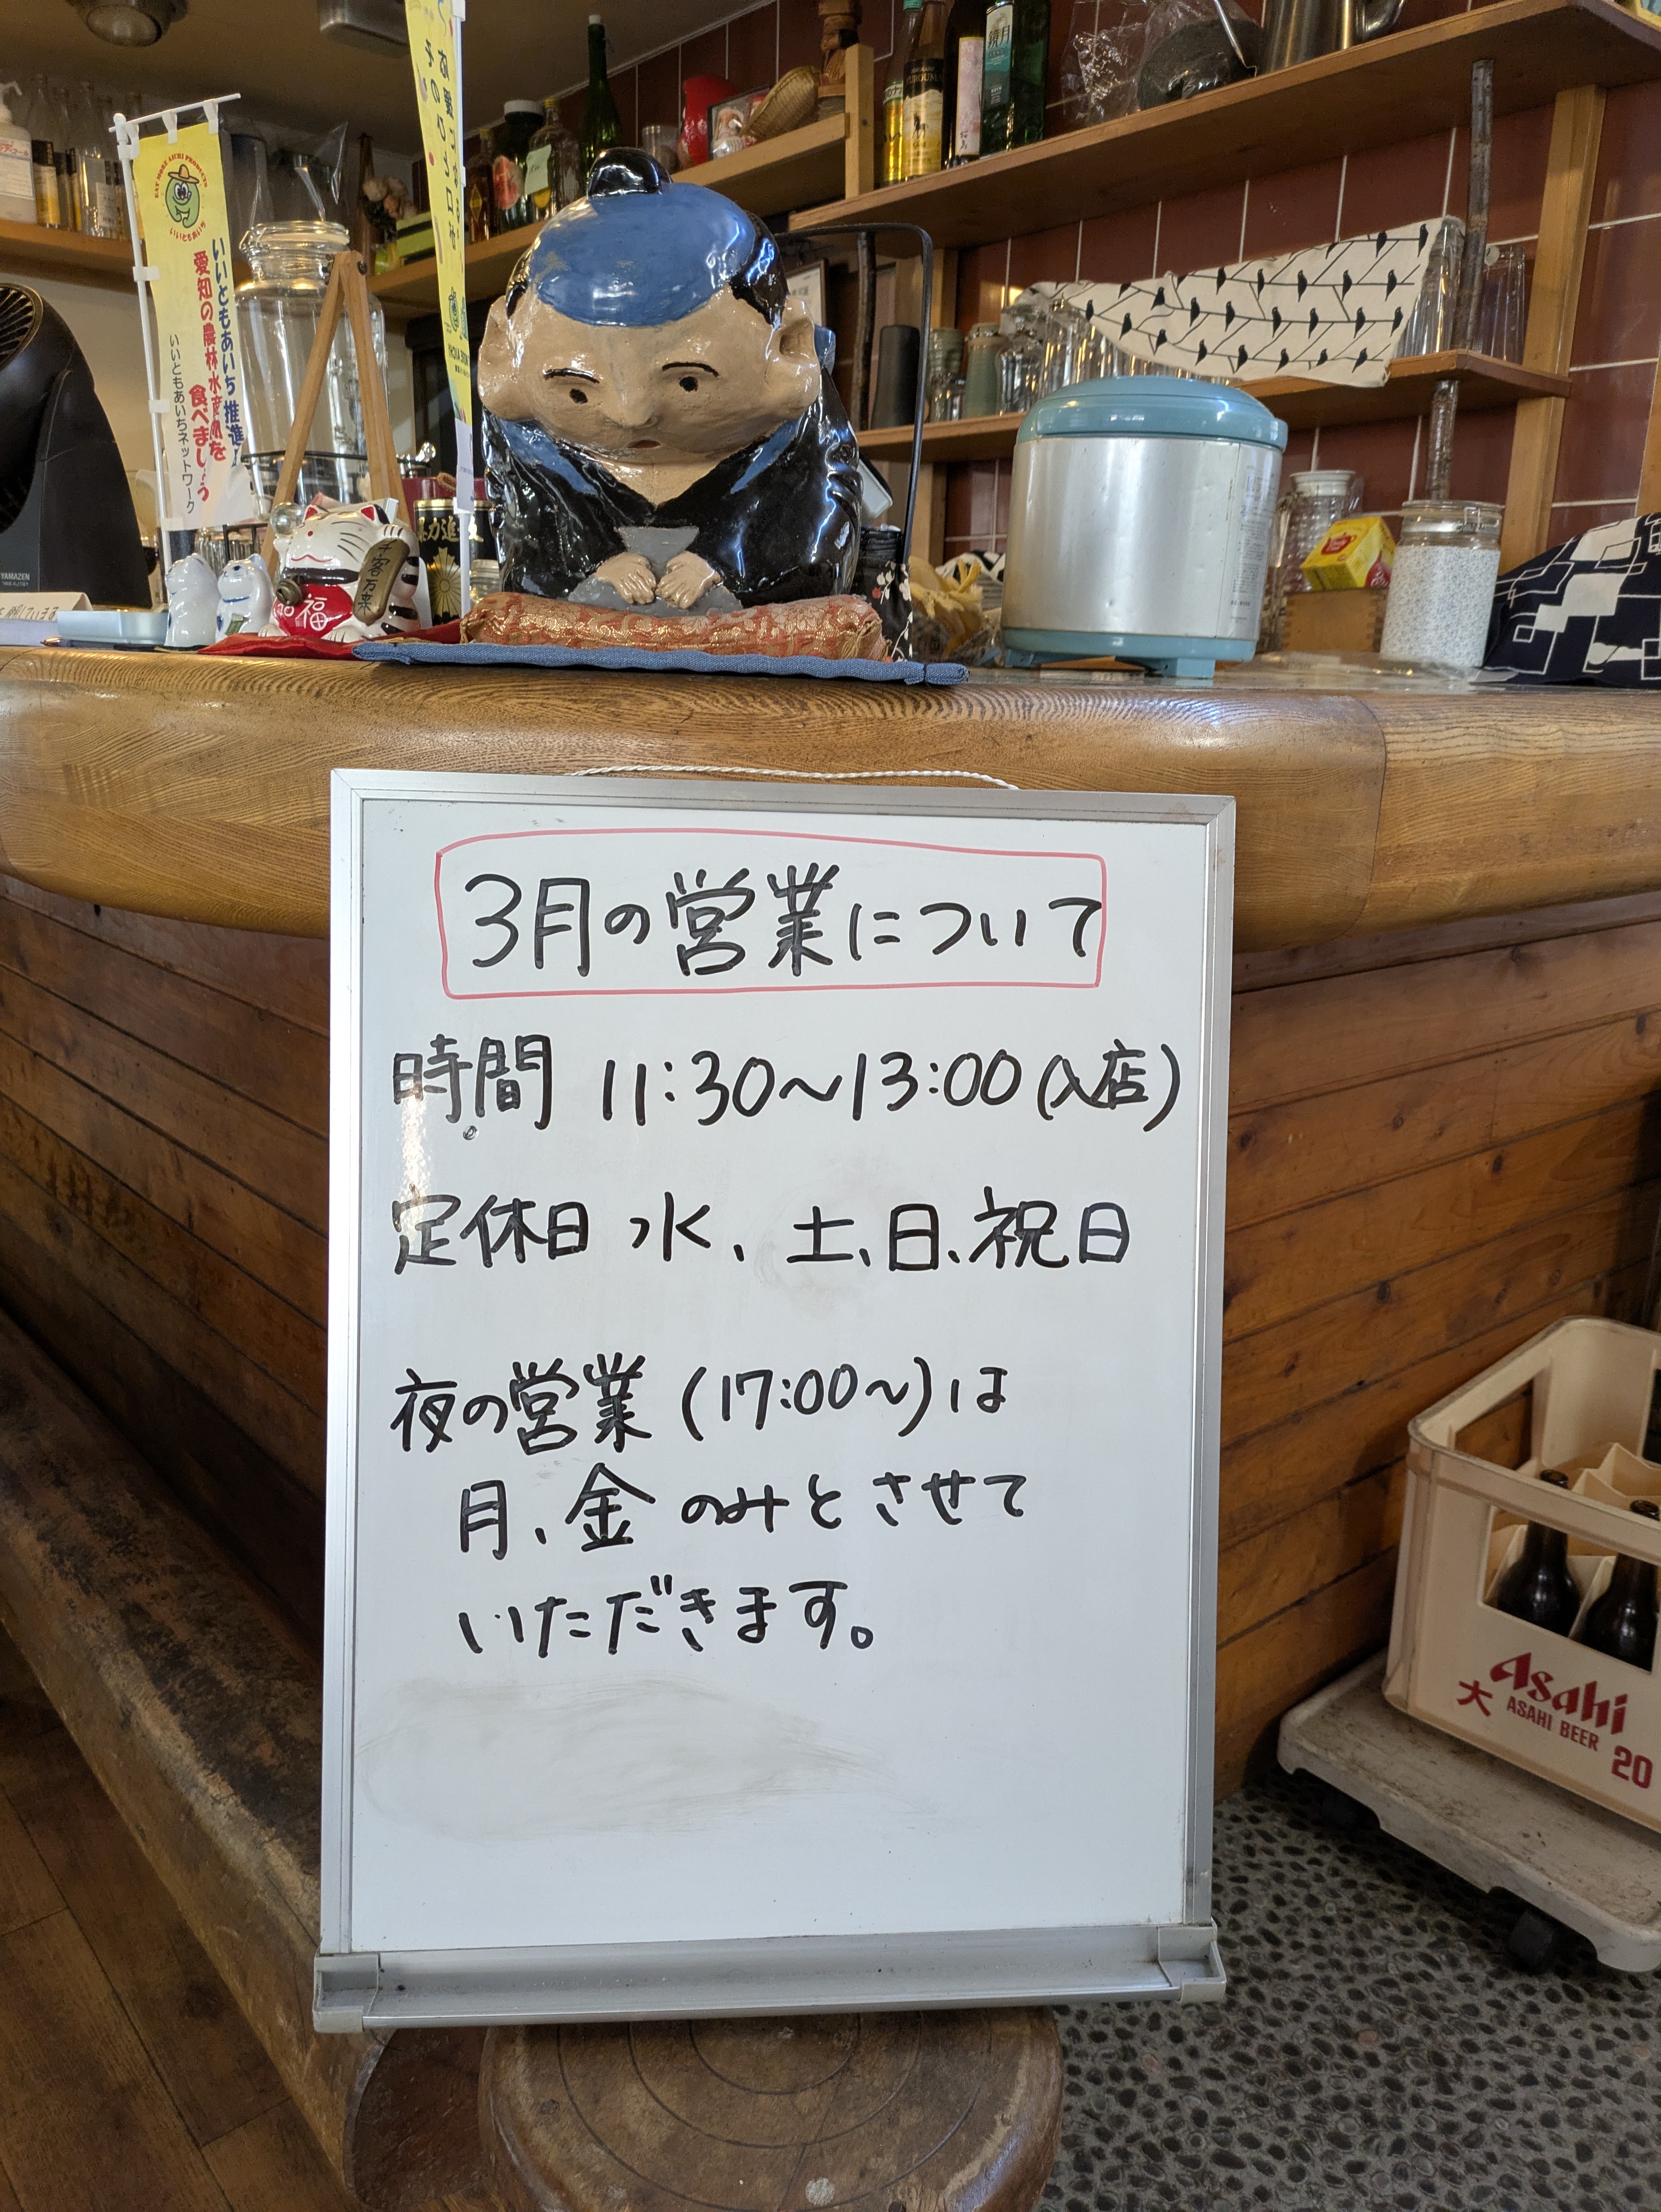 EAT MORE AICHI PRODUCTS
いいともあいち
いいともあいち推進
愛知の農林水産物を
食べましょう
いいともあいちネットワーク
鏡月
千客万来
福
YAMAZEN
3月の営業について
時間 11:30〜13:00(入店)
定休日 水、土、日、祝日
夜の営業(17:00〜)は
月、金のみとさせて
いただきます。
Asahi
大 ASAHI BEER
20